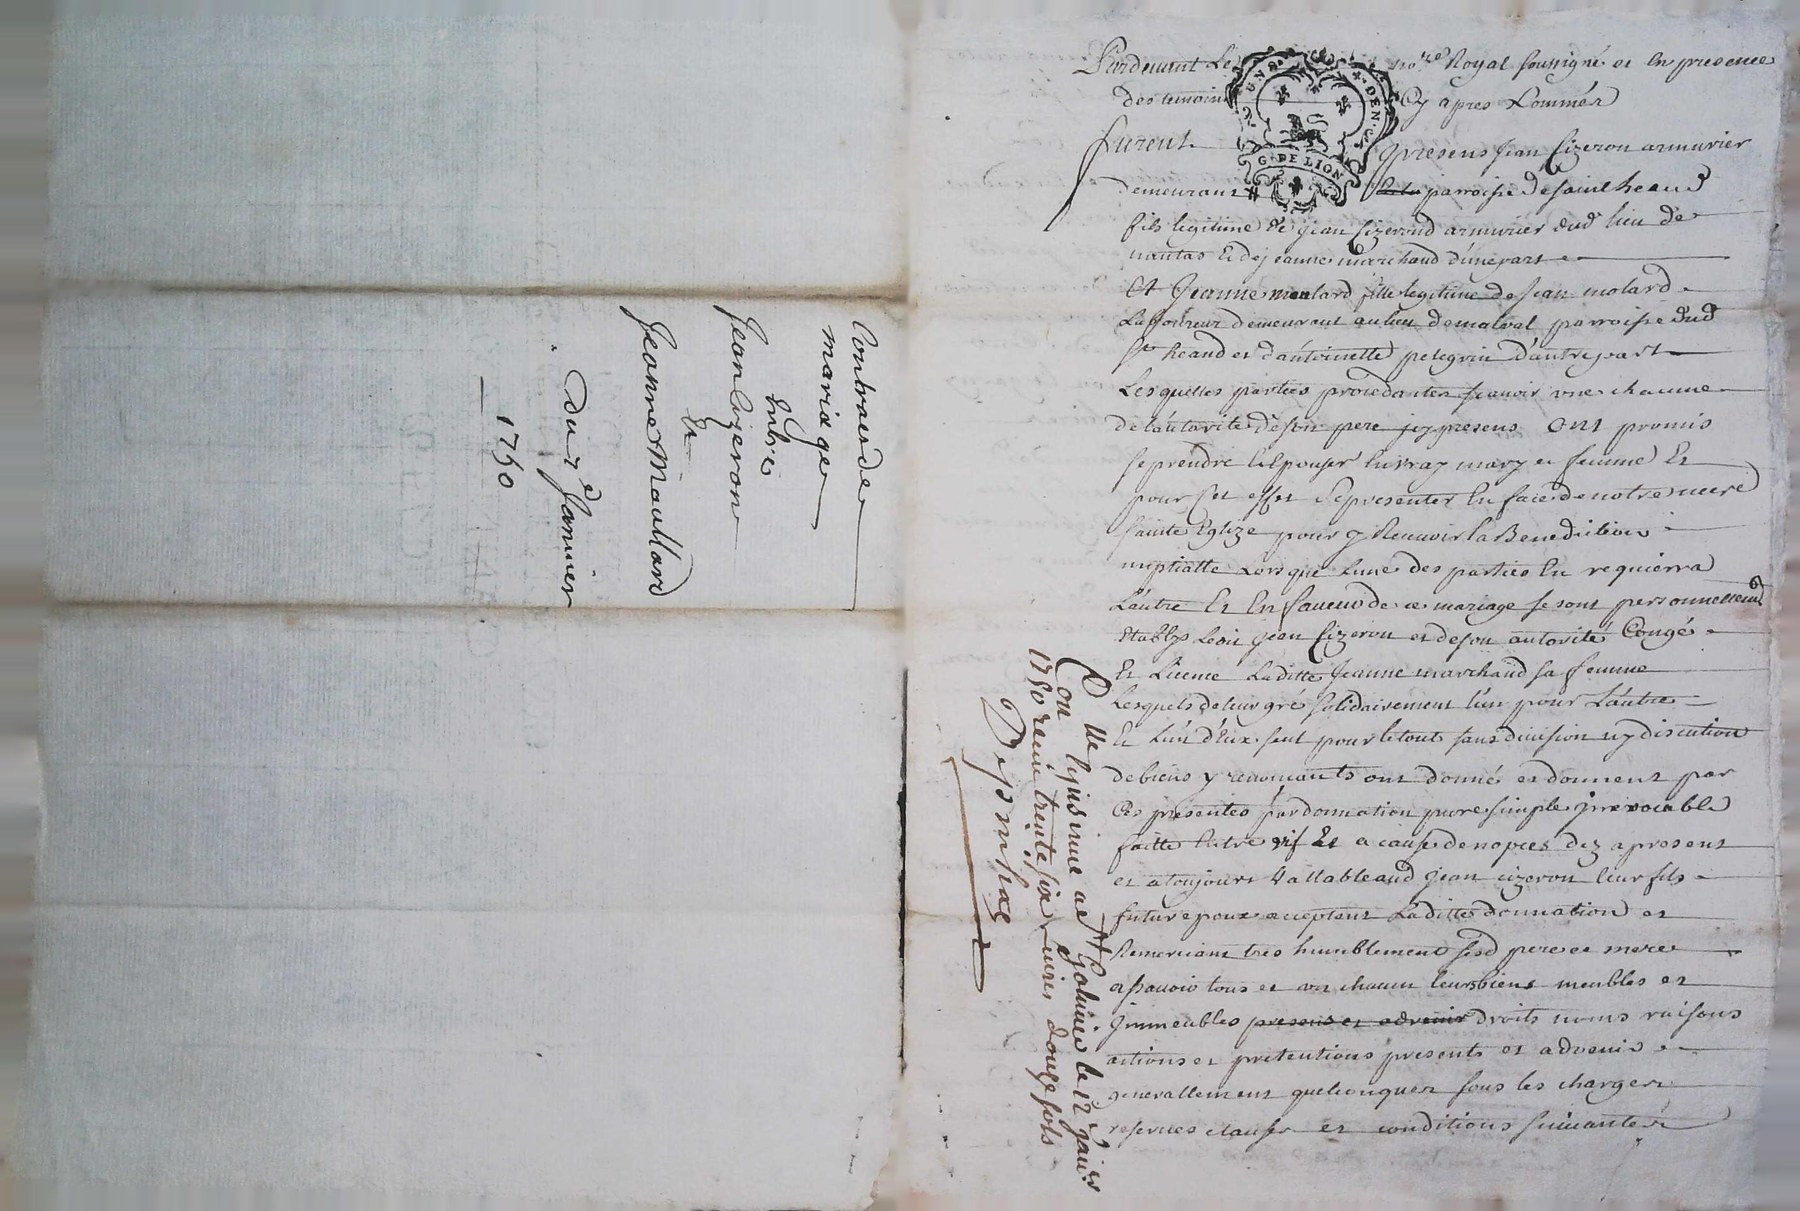 Contrat de
mariage
entre
Jean Cizeron
Et
Jeanne Maullard
du 7e Janvier
1750
Pardevant Le no.re Royal soussigné et En presence
des temoins Cy apres Nommés
furent presens Jean Cizeron armurier
demeurant # parroisse de saint heand
fils legitime de jean Cizerond armurier dud lieu de
nantas et de jeanne marchand d'une part
Et Jeanne molard fille legitime de Jean molard
Laboureur demeurant au lieu de malval parroisse dud
St heand et d'antoinette pelegrin d'autre part
Lesquelles parties procedantes scavoir une chacune
de l'autorité de son pere icy presens ont promis
se prendre et Epouser En vray mary et femme Et
pour Cet effet se presenter En face de notre mere
sainte Eglize pour y Recevoir la Benediction
nuptialle Lorsque L'une des parties En requierra
L'autre Et En faveur de ce mariage se sont personnellement
Etablys Led Jean Cizeron et de son autorité Congé
Et Licence Laditte Jeanne marchand sa femme
Lesquels de leur gré solidairement l'un pour L'autre
Et L'un d'Eux seul pour le tout sans division ny discution
de biens y renoncants ont donné et donnent par
Ces presentes par donnation pure simple jrrevocable
faitte Entre vif Et a cause de nopces dez a present
et a toujours Vallable aud Jean cizeron leur fils
futur epoux acceptant Laditte donnation et
Remerciant tres humblement sesd pere et mere
assavoir tous et un chacun leurs biens meubles et
Jmmeubles presens et advenir droits noms raisons
actions et pretentions presents et advenir
generallement quelconques sous les charges
reserves clauses et conditions suivantes
Con lle Et jnsinué a St Galmier le 12 janv.er
1750 receu trente six livres douze sols